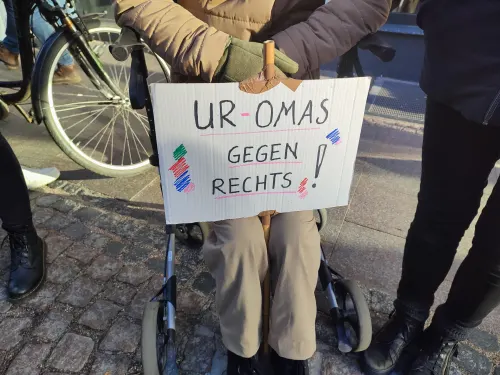 UR-OMAS
GEGEN
RECHTS!